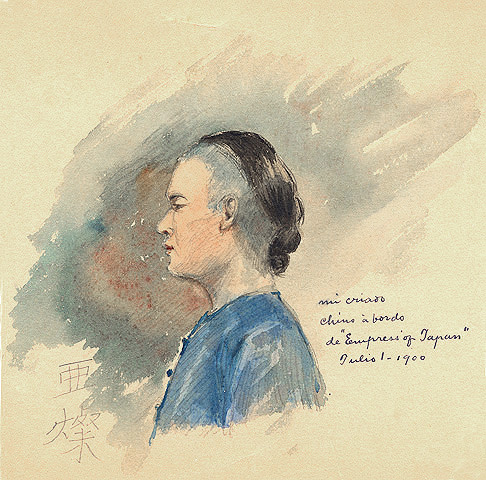 mi criado
chino à bordo
de "Empress of Japan"
Julio 1-1900
亜
燦